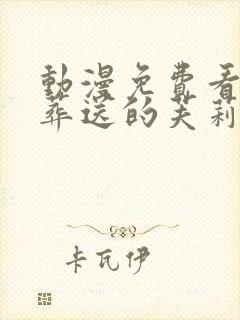 動漫免費看
葬送的芙莉
卡瓦伊